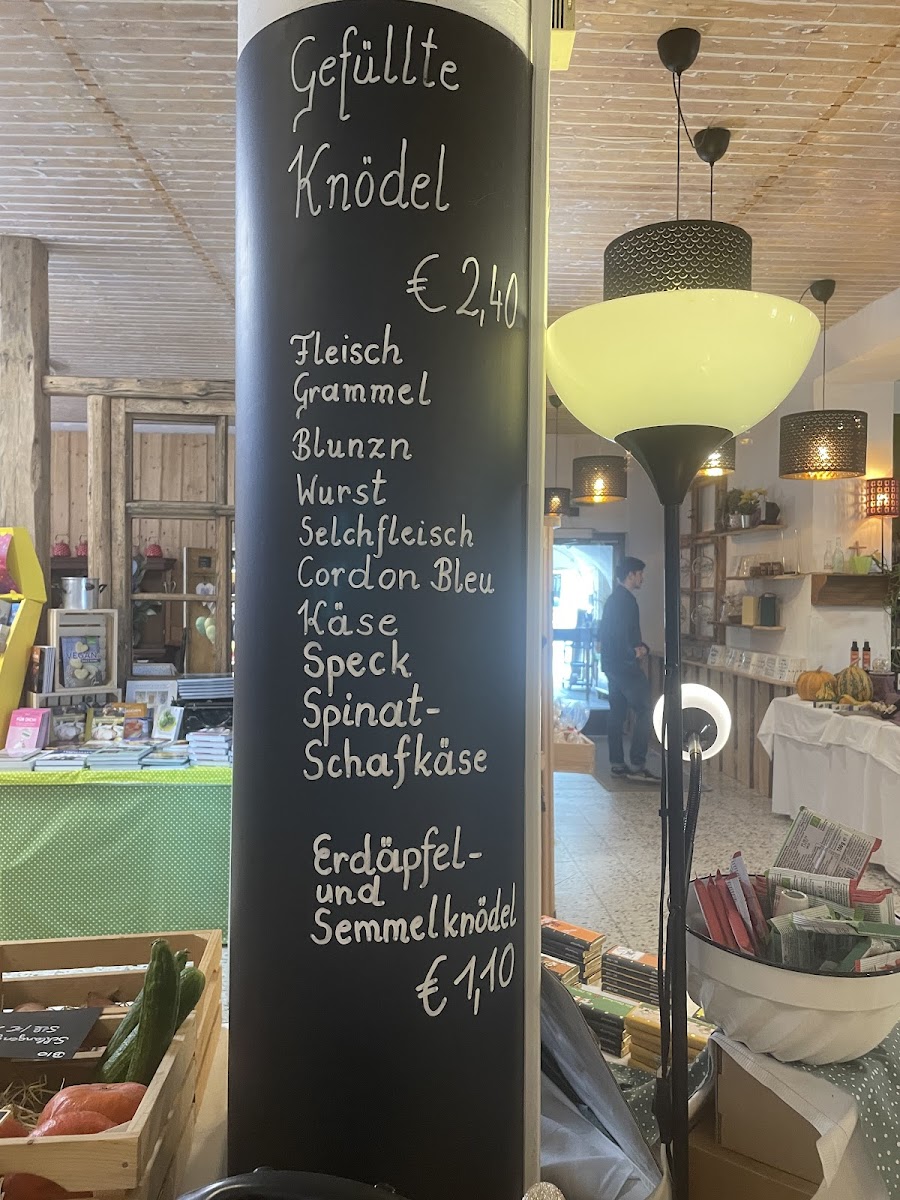 Gefüllte
Knödel
€ 2,40
Fleisch
Grammel
Blunzn
Wurst
Selchfleisch
Cordon Bleu
Käse
Speck
Spinat-
Schafkäse
Erdäpfel-
und
Semmelknödel
€ 1,10
VEGAN
BIO